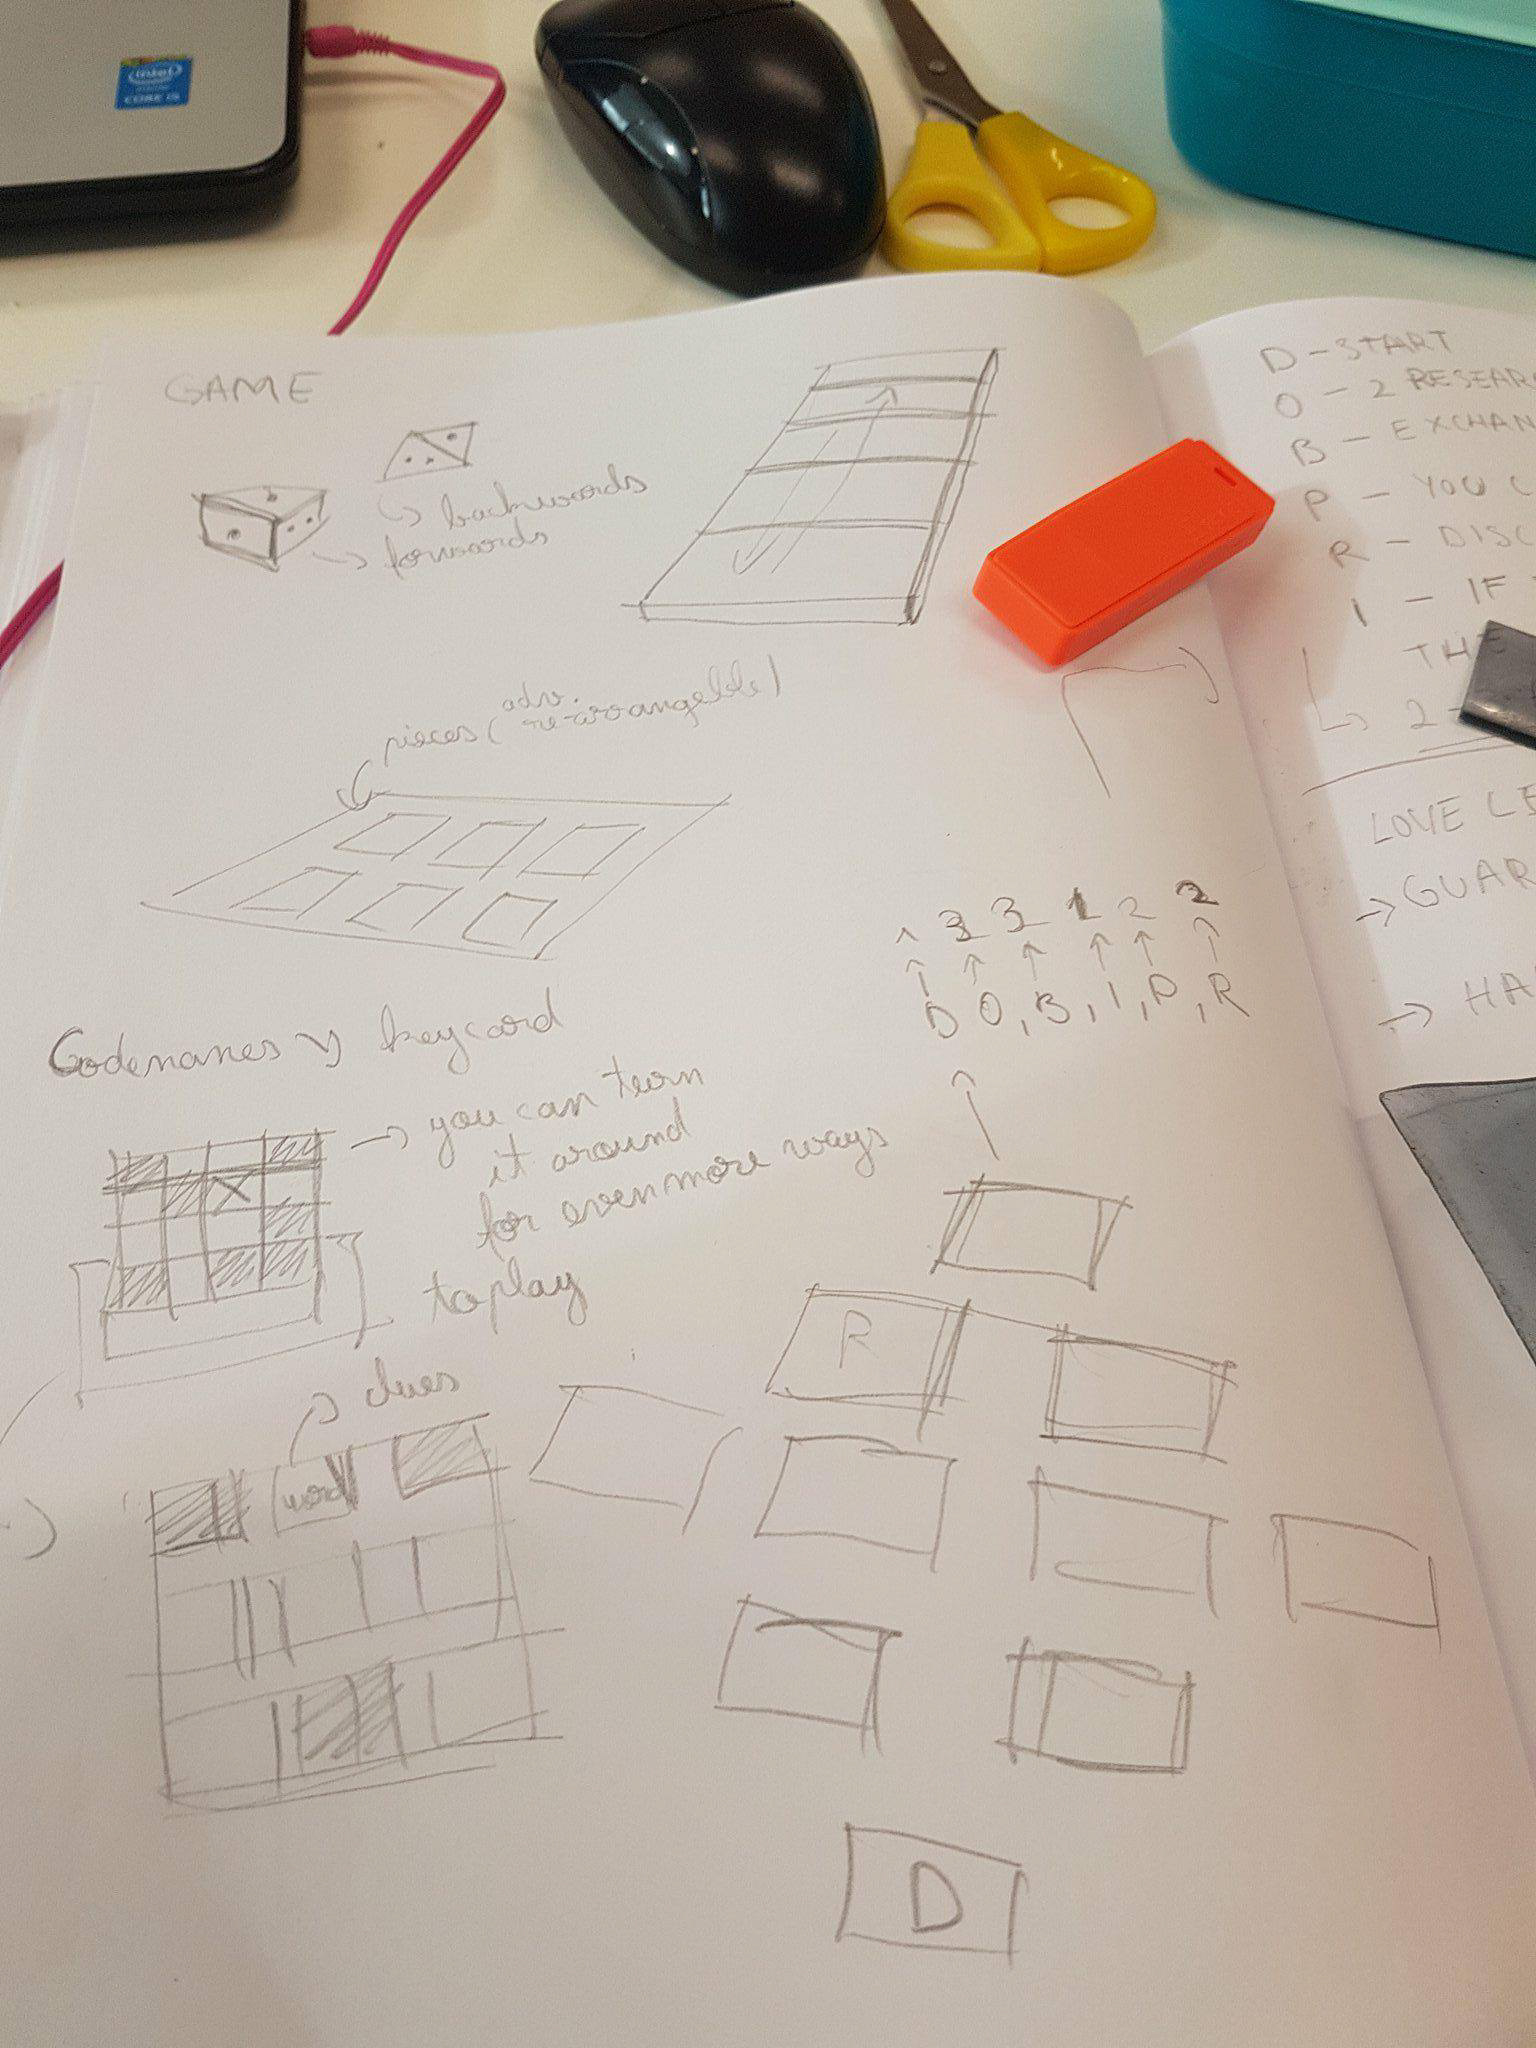 intel
CORE i5
GAME
backwards
forwards
pieces (adv.
re-arrangeble)
1 3 3 1 2 2
D O, B, I, P, R
Codenames → keycard
→ you can turn
it around
for even more ways
to play
clues
word
R
D
D - START
O - 2 RESEAR
B - EXCHAN
P - YOU
R - DISC
I - IF
THE
2
LOVE LE
→ GUAR
→ HA